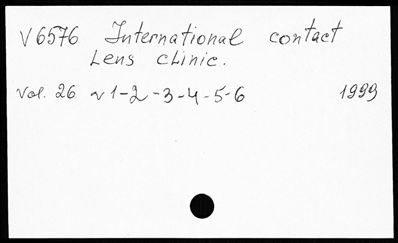 V6576 International contact
Lens clinic.
Vol. 26 N 1-2-3-4-5-6 1999